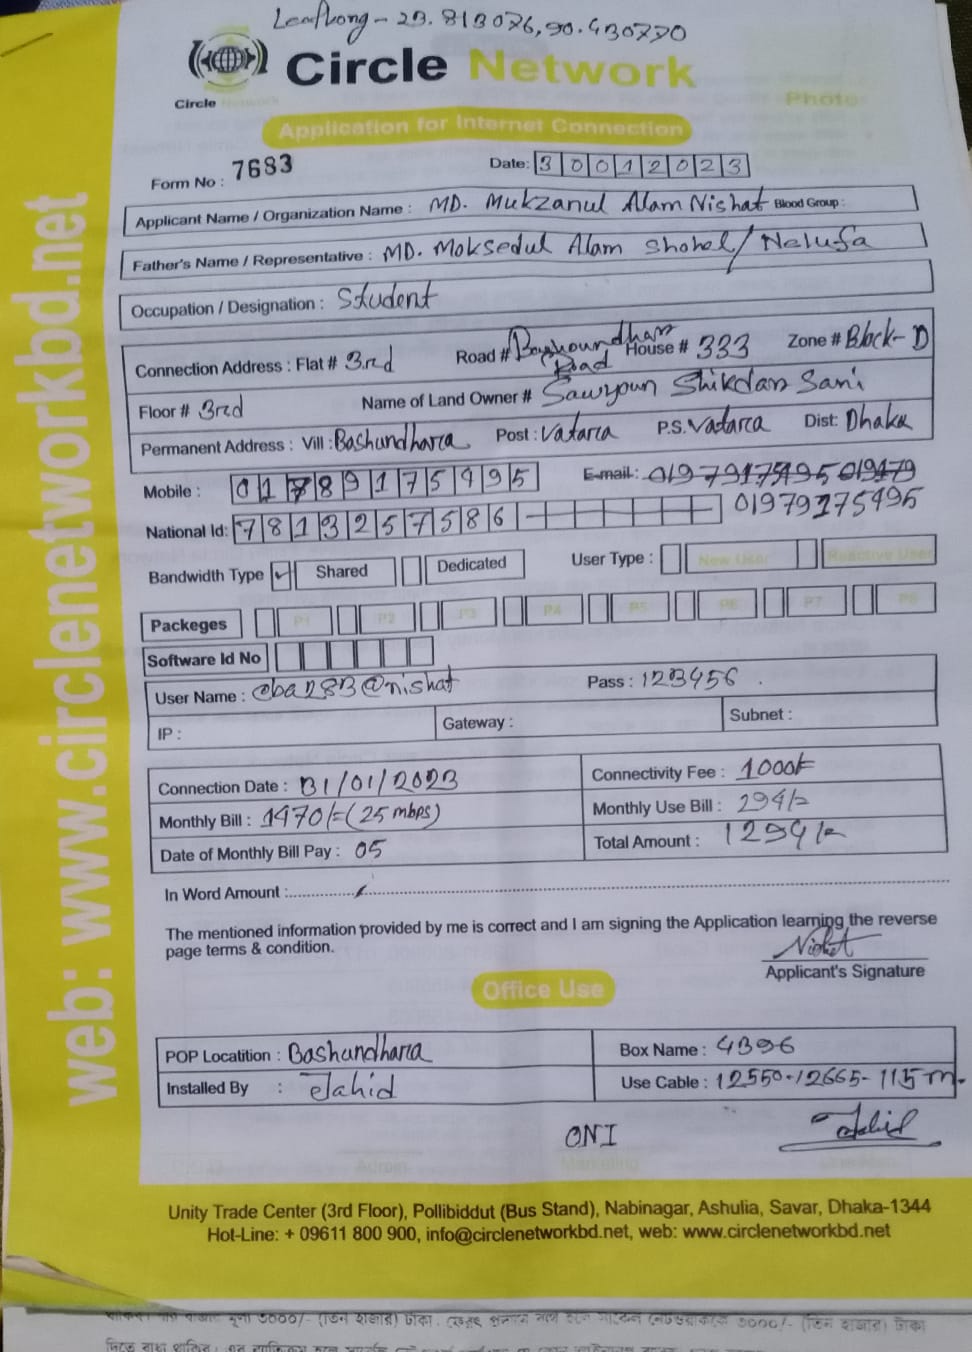 23.813076, 90.430770
Circle Network
Circle Network
Photo
Application for Internet Connection
Form No : 7683 Date: 30012023
Applicant Name / Organization Name : MD. Mukzanul Alam Nishat Blood Group :
Father's Name / Representative : MD. Moksedul Alam Shohel/Nelufa
Occupation / Designation : Student
Connection Address : Flat # 3rd Road # Bashoundhara Road House # 333 Zone # Block-D
Floor # 3rd Name of Land Owner # Shikdar Sani
Permanent Address : Vill : Bashundhara Post : Vatara P.S. Vatara Dist: Dhaka
Mobile : 01789175495 E-mail:
National Id: 7813257586 01979175495
Bandwidth Type ✓ Shared Dedicated User Type : New User Reactive User
Packeges P1 P2 P3 P4 P5 P6 P7 P8
Software Id No
User Name : @nishat Pass : 123456
IP : Gateway : Subnet :
Connection Date : 31/01/2023 Connectivity Fee : 1000/=
Monthly Bill : 1470/=(25 mbps) Monthly Use Bill : 294/=
Date of Monthly Bill Pay : 05 Total Amount : 1294/=
In Word Amount :
The mentioned information provided by me is correct and I am signing the Application learning the reverse
page terms & condition.
Nishat
Applicant's Signature
Office Use
POP Locatition : Bashundhara Box Name : 4396
Installed By : Jahid Use Cable : 12550-12665-115m.
ONI Jahid
Admin Marketing
Unity Trade Center (3rd Floor), Pollibiddut (Bus Stand), Nabinagar, Ashulia, Savar, Dhaka-1344
Hot-Line: + 09611 800 900, info@circlenetworkbd.net, web: www.circlenetworkbd.net
web: www.circlenetworkbd.net